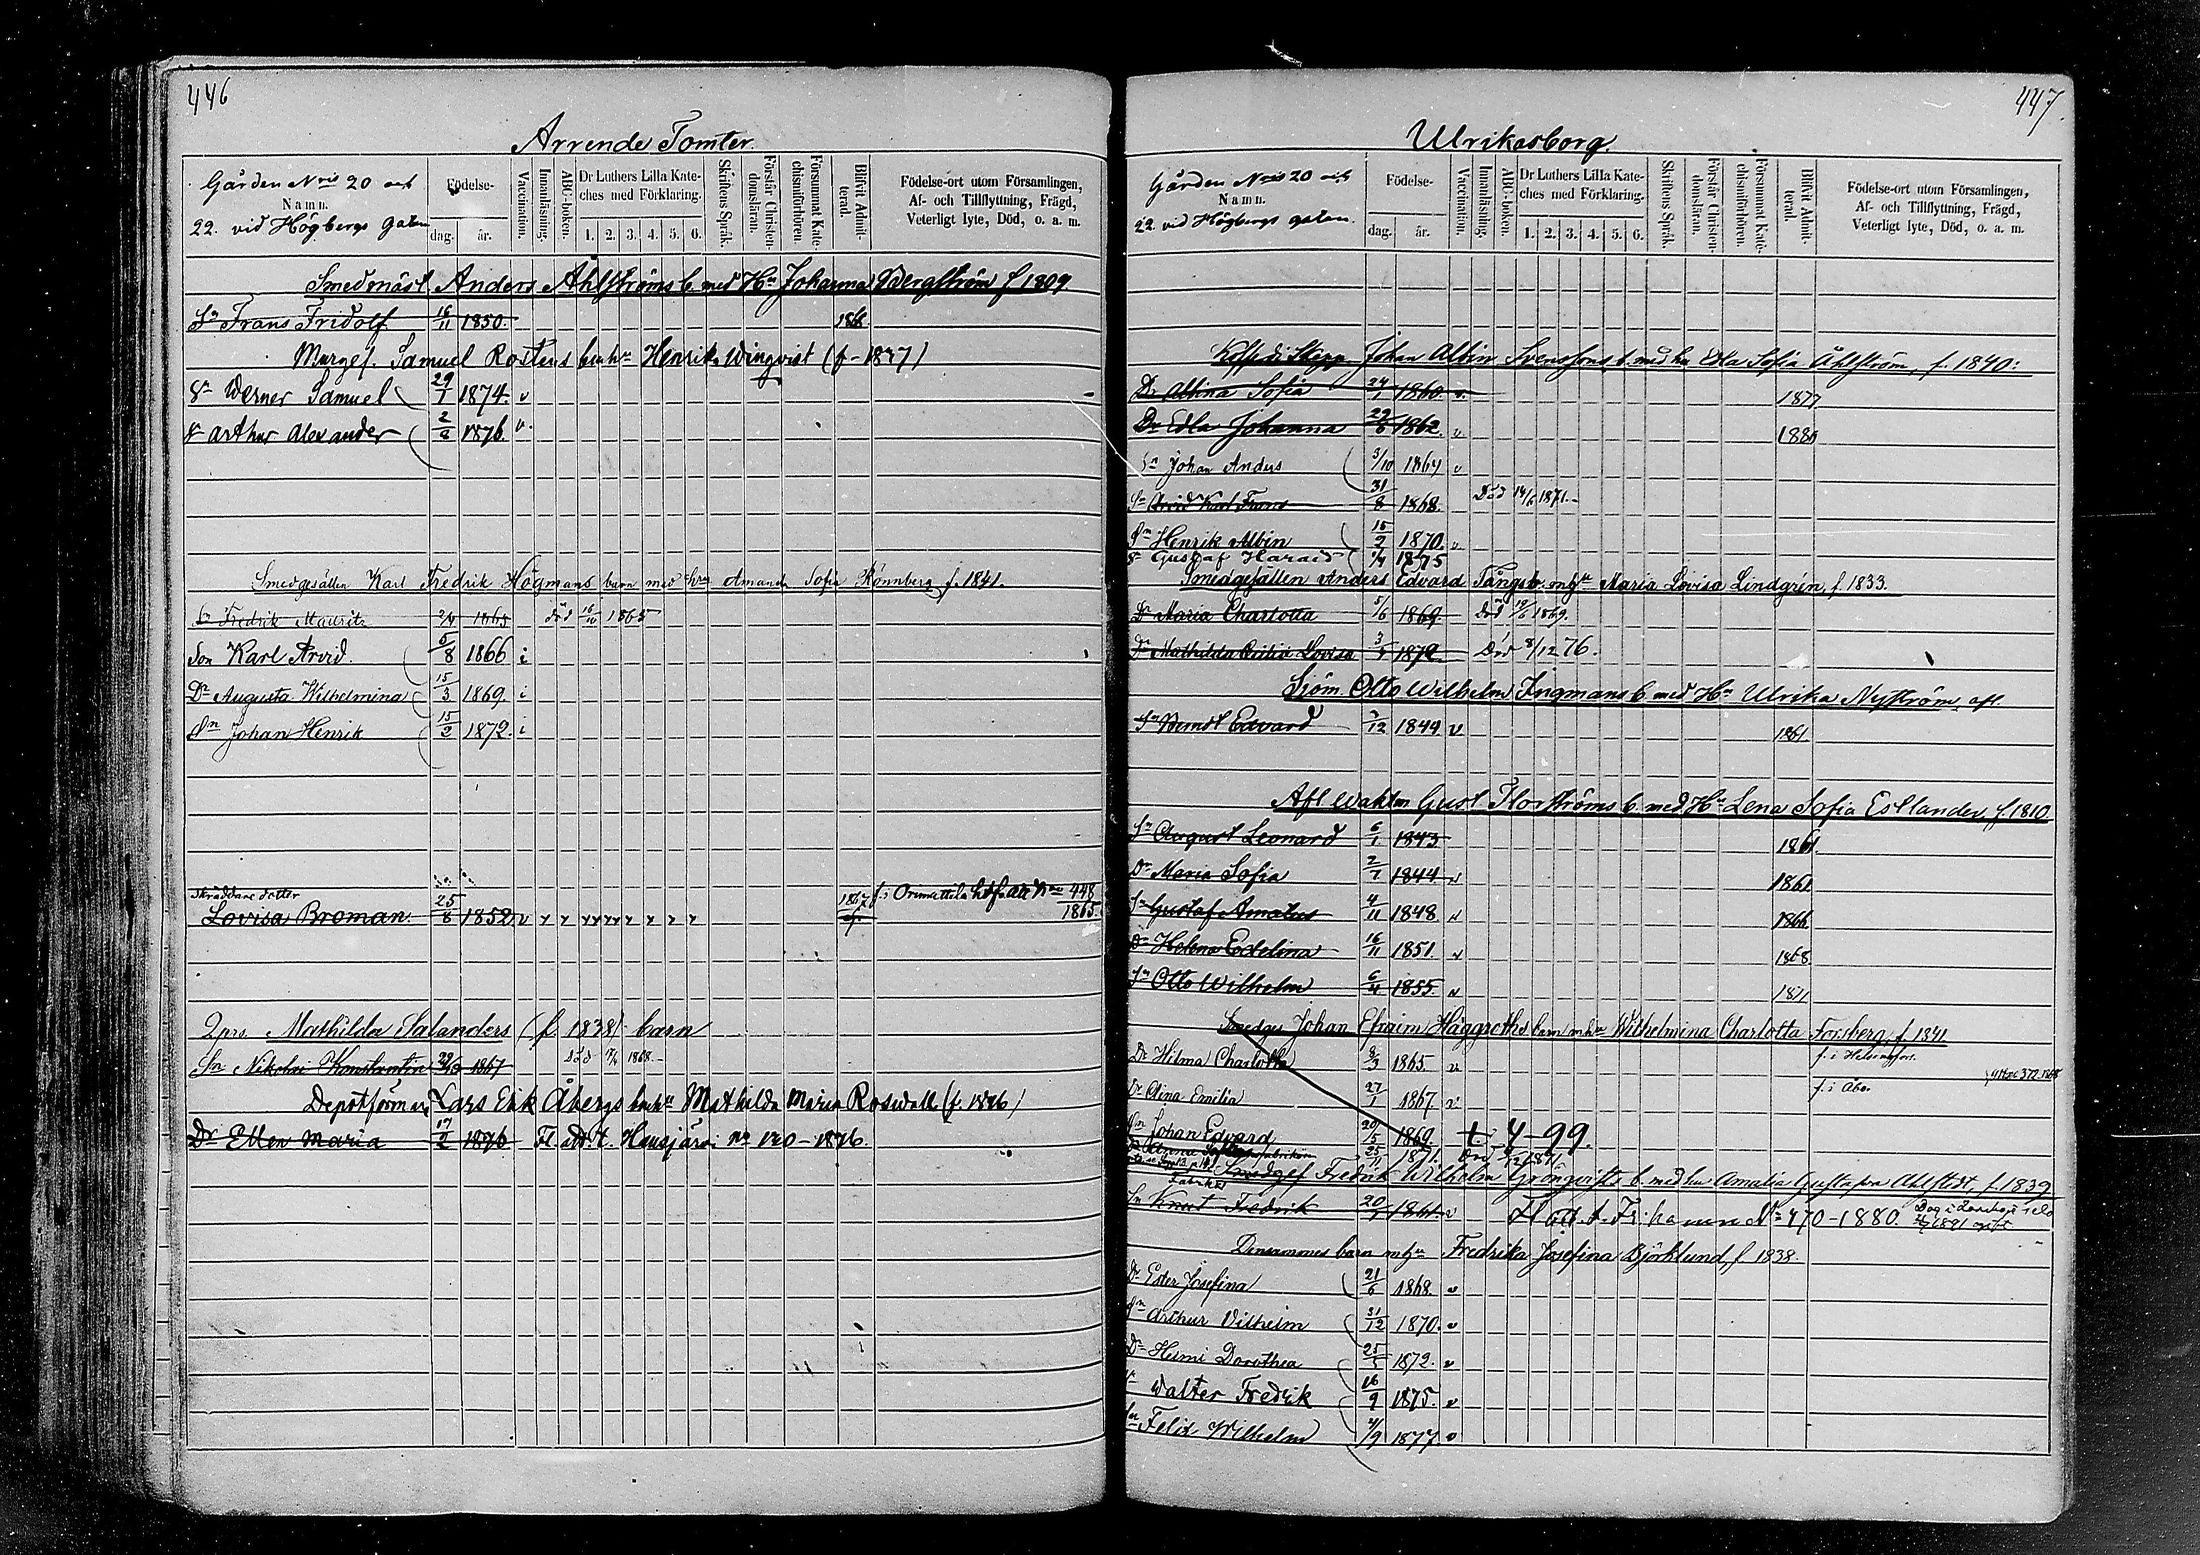 446
Arrende Tomter
Gården Nris 20 och
Namn.
22. vid Högbergs gatan
Födelse-
dag. år.
Vaccination.
Innanläsning.
ABC-boken.
Dr Luthers Lilla Kate-
ches med Förklaring.
1. 2. 3. 4. 5. 6.
Skriftens Språk.
Förstår Christen-
domsläran.
Försummat Kate-
chismiförhören.
Blifvit Admit-
terad.
Födelse-ort utom Församlingen,
Af- och Tillflyttning, Frägd,
Veterligt lyte, Död, o. a. m.
Smedmäst. Anders Ahlströms b. med Hu Johanna Bergström f 1809.
Sn Frans Fridolf 16/11 1850. 1868
Samuel Rostens barn Henrika Winqvist (f-1847)
Sn Werner Samuel 29/1 1874. v
Sn Arthur Alexander 1876. v
Smedgesällen Karl Fredrik Högmans barn med hru Amanda Sofia Rönnberg f. 1841.
Sn Fredrik Mauritz 1865 död 16/10 1865
Son Karl Arvid. 5/8 1866 i
Dr Augusta Wilhelmina 15/3 1869. i
Sn Johan Henrik 15/2 1872. i
skräddare dotter
Lovisa Broman. 25/8 1852. v f. i Orimattila
448
1865.
Mathilda Salanders (f 1838) barn
Sn Nikolai Konstantin 1867 död 1868
Depotförman Lars Erik Åbergs Mathilda Maria Rosvall (f. 1846)
Dr Ellen Maria 17/2 1876 Fl. att. t. Hausjärvi No 120-1876.
447.
Ulrikasborg.
Gården Nris 20 och
Namn.
22 vid Högbergs gatan.
Födelse-
dag. år.
Vaccination.
Innanläsning.
ABC-boken.
Dr Luthers Lilla Kate-
ches med Förklaring.
1. 2. 3. 4. 5. 6.
Skriftens Språk.
Förstår Christen-
domsläran.
Försummat Kate-
chismiförhören.
Blifvit Admit-
terad.
Födelse-ort utom Församlingen,
Af- och Tillflyttning, Frägd,
Veterligt lyte, Död, o. a. m.
Koffardi Skepp. Johan Albin Svenssons b. med hu Edla Sofia Åhlström, f. 1840:
Dr Albina Sofia 24/1 1860. v. 1877
Dr Edla Johanna 29/8 1862. v 1880
Sn Johan Anders 3/10 1864 v
Sn Arvid Karl Frans 31/8 1868. Död 14/6 1871.
Sn Henrik Albin 15/2 1870. v
Sn Gustaf Harald 1875
Smedgesällen Anders Edvard Tångs b. m hu Maria Lovisa Lindgrén, f. 1833.
Dr Maria Charlotta 5/6 1869 Död 1869.
Dr Mathilda Cecilia Lovisa 1872 Död 8/12 76.
Sjöm. Otto Wilhelm Ingmans b. med Hu Ulrika Nyström, afl.
Sn Berndt Edvard 1844 v 1861
Afl Vakten Gust Florströms b. med Hu Lena Sofia Estlander, f. 1810.
Sn August Leonard 6/1 1843 1861.
Dr Maria Sofia 1844 v 1861
Sn Gustaf Amatus 4/11 1848. v 1866
Dr Helena Edelina 16/11 1851. v 1868.
Sn Otto Wilhelm 6/4 1855. v 1871
Smedges Johan Efraim Häggroths barn m hu Wilhelmina Charlotta Forsberg, f. 1841
Dr Hilma Charlotta 8/3 1865. v f. i Helsingfors.
Dr Alina Emilia 27/1 1867. v f. i Åbo.
372. 1868
Sn Johan Edvard 20/5 1869. † 4-99.
25/11 1871. Död
Smedgес Fredrik Wilhelm Grönqvists b. med hu Amalia Gustafva Ahlstedt f. 1839
Sn Knut Fredrik 1861. v Fl att. t. Fr:hamn No 470-1880.
1891 gift
Densammes barn m hu Fredrika Josefina Björklund, f. 1838.
Dr Ester Josefina 21/6 1868. v
Sn Arthur Vilhelm 31/12 1870. v
Dr Helmi Dorothea 25/5 1872. v
Sn Walter Fredrik 16/9 1875. v
Sn Felix Wilhelm 1877. v